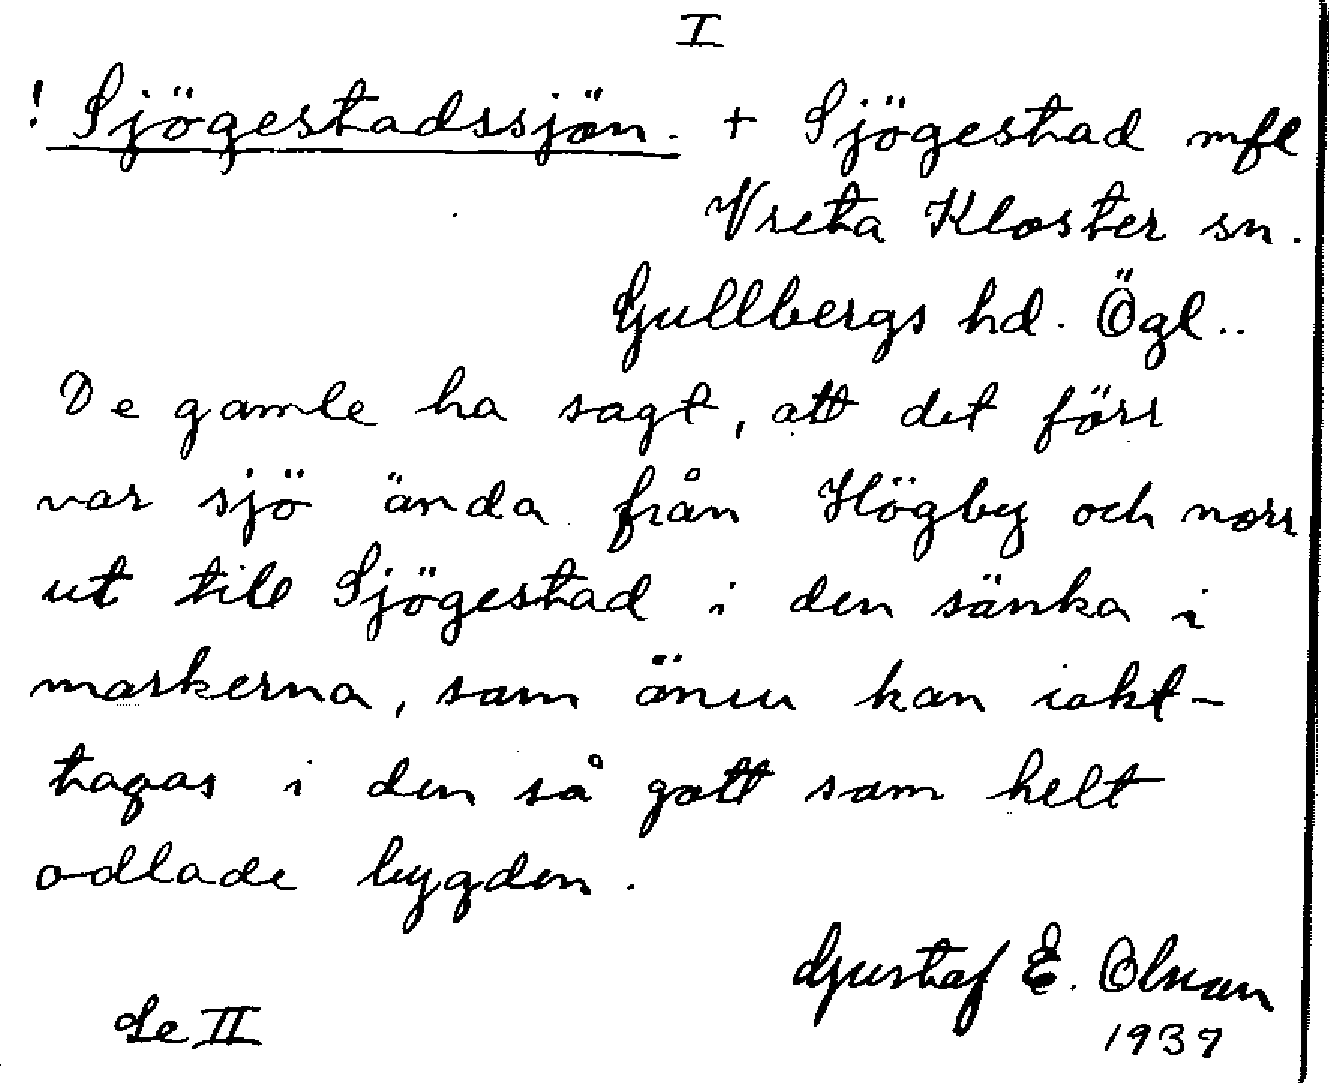 I
! Sjögestadssjön. + Sjögestad mfl
Vreta Kloster sn.
Gullbergs hd. Ögl..
De gamle ha sagt, att det förr
var sjö ända från Högby och norr
ut till Sjögestad i den sänka i
markerna, som ännu kan iakt-
tagas i den så gott som helt
odlade bygden.
Gustaf E. Olson
Se II
1939